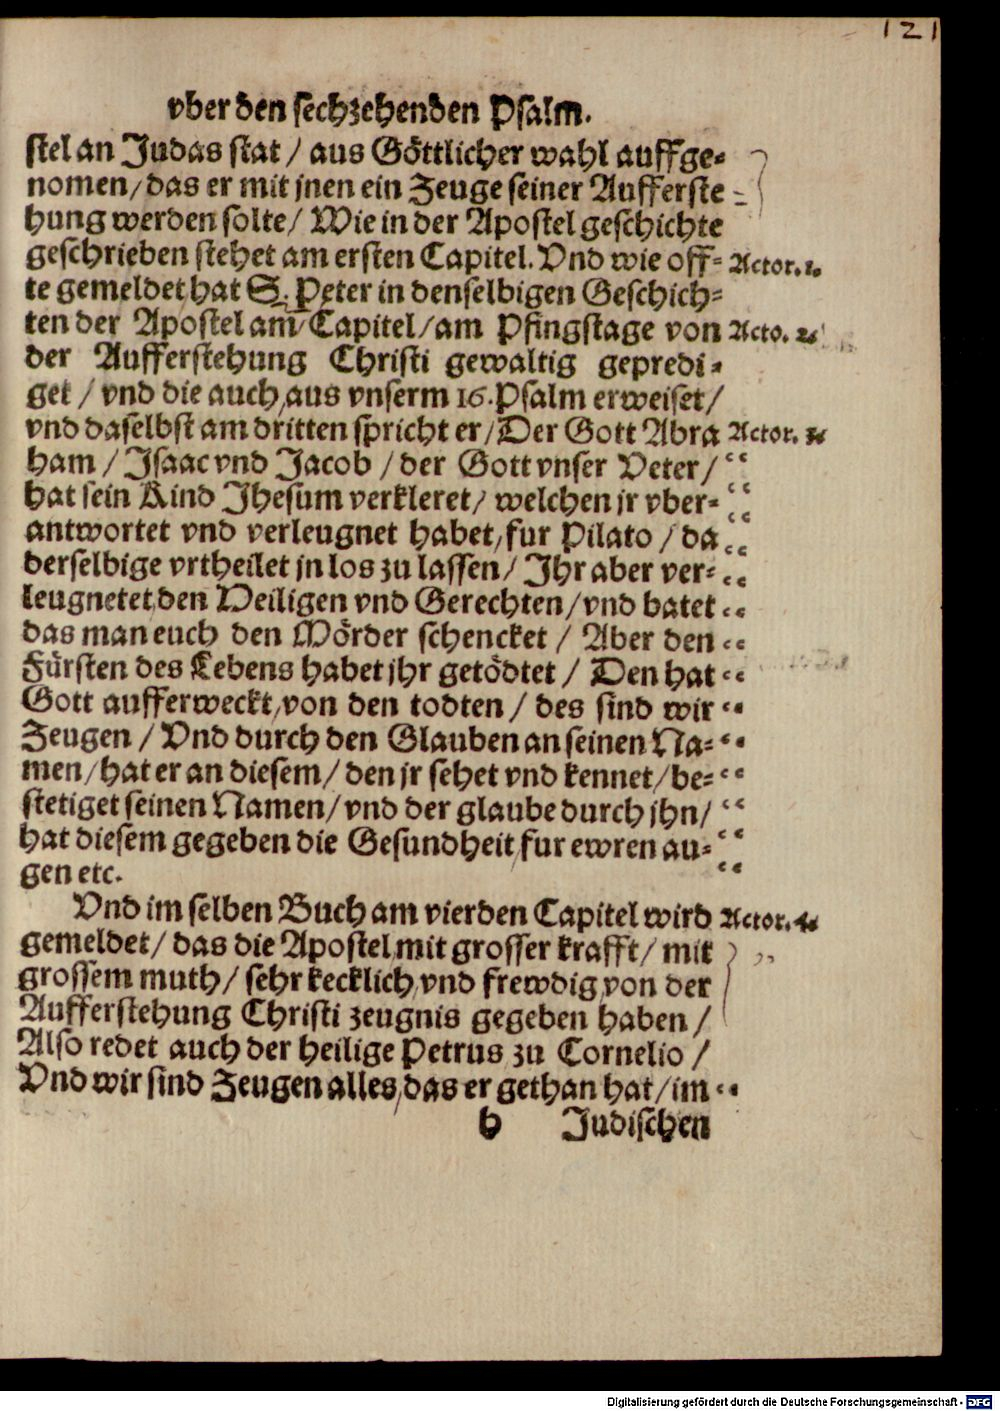 121
vber den sechzehenden Psalm.
stel an Judas stat / aus Göttlicher wahl auffge-
nomen / das er mit jnen ein Zeuge seiner Aufferste-
hung werden solte / Wie in der Apostel geschichte
geschrieben stehet am ersten Capitel. Vnd wie off- Actor. 1.
te gemeldet hat S. Peter in denselbigen Geschich-
ten der Apostel am Capitel / am Pfingstage von Acto. 2.
der Aufferstehung Christi gewaltig gepredi-
get / vnd die auch aus vnserm 16. Psalm erweiset /
vnd daselbst am dritten spricht er / Der Gott Abra Actor. 3.
ham / Isaac vnd Jacob / der Gott vnser Veter /
hat sein Kind Jhesum verkleret / welchen jr vber-
antwortet vnd verleugnet habet / fur Pilato / da
derselbige vrtheilet jn los zu lassen / Ihr aber ver-
leugnetet den Heiligen vnd Gerechten / vnd batet
das man euch den Mörder schencket / Aber den
Fürsten des Lebens habet jhr getödtet / Den hat
Gott aufferweckt von den todten / des sind wir
Zeugen / Vnd durch den Glauben an seinen Na-
men / hat er an diesem / den jr sehet vnd kennet / be-
stetiget seinen Namen / vnd der glaube durch jhn /
hat diesem gegeben die Gesundheit fur ewren au-
gen etc.
Vnd im selben Buch am vierden Capitel wird Actor. 4.
gemeldet / das die Apostel mit grosser krafft / mit
grossem muth / sehr kecklich vnd frewdig von der
Aufferstehung Christi zeugnis gegeben haben /
Also redet auch der heilige Petrus zu Cornelio /
Vnd wir sind Zeugen alles das er gethan hat / im
h Judischen
Digitalisierung gefördert durch die Deutsche Forschungsgemeinschaft - DFG